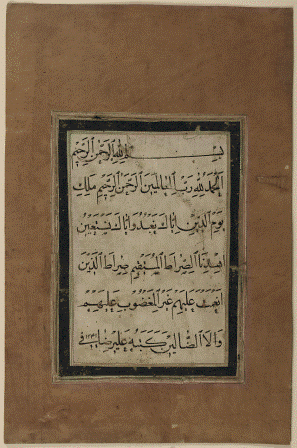 بسم الله الرحمن الرحيم
الحمد لله رب العالمين الرحمن الرحيم ملك
يوم الدين اياك نعبد واياك نستعين
اهدنا الصراط المستقيم صراط الذين
انعمت عليهم غير المغضوب عليهم
ولا الضالين كتبه عليرضا في